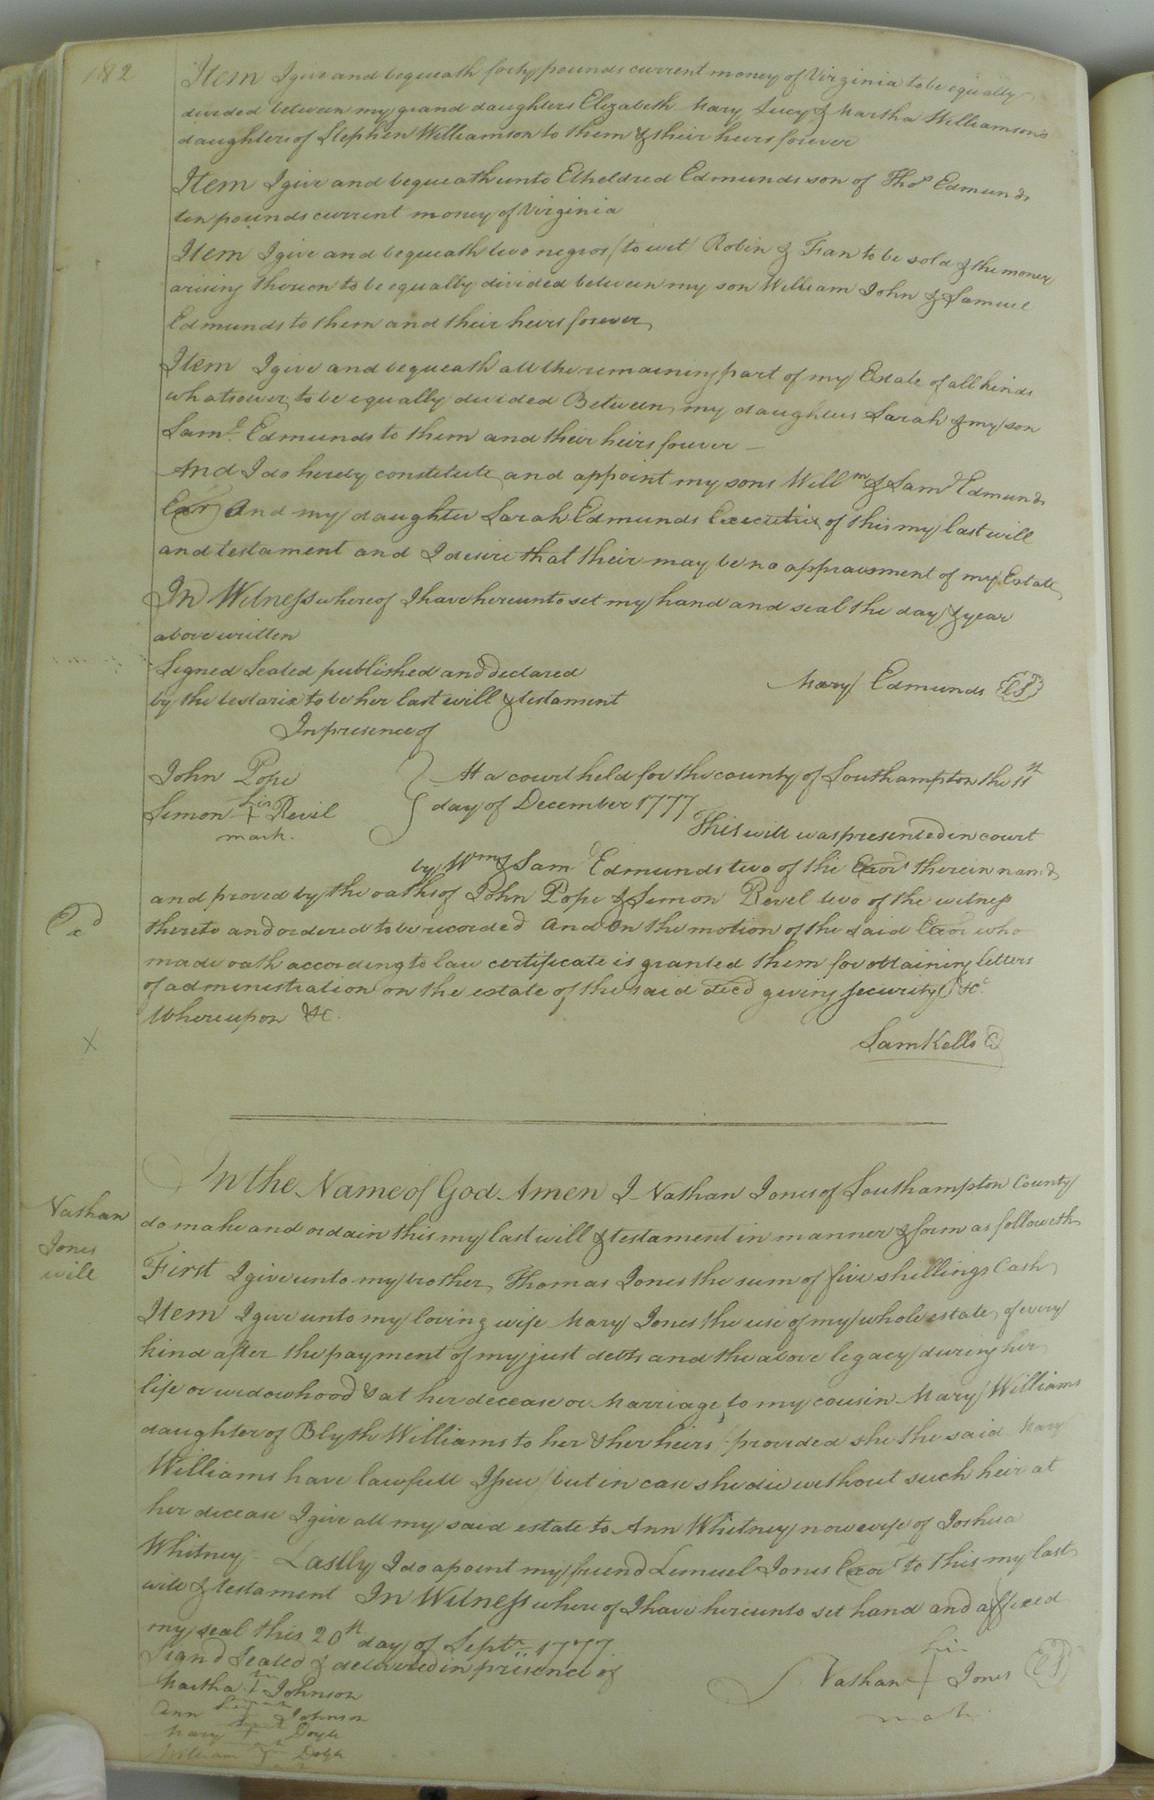 182
Item I give and bequeath forty pounds current money of Virginia to be equally
divided between my grand daughters Elizabeth Mary Lucy & Martha Williamsons
daughters of Stephen Williamson to them & their heirs forever
Item I give and bequeath unto Etheldred Edmunds son of Thos Edmunds
ten pounds current money of Virginia
Item I give and bequeath two negros (to wit) Robin & Fan to be sold & the money
arising thereon to be equally divided between my son William John & Samuel
Edmunds to them and their heirs forever
Item I give and bequeath all the remaining part of my Estate of all kinds
whatsoever to be equally divided Between my daughter Sarah & my son
Saml. Edmunds to them and their heirs forever —
And I do hereby constitute and appoint my sons Willm & Saml Edmunds
Exr And my daughter Sarah Edmunds Executrix of this my last will
and testament and I desire that their may be no appraisment of my Estate
In Witness whereof I have hereunto set my hand and seal the day & year
above written
Signed Sealed published and declared
by the testarix to be her last will & testament
In presence of
Mary Edmunds LS
John Pope
Simon his + Revil
mark.
At a court held for the county of Southampton the 11th
day of December 1777
This will was presented in court
by Wm & Saml Edmunds two of the Exors therein namd
and proved by the oaths of John Pope & Simon Revel two of the witness
thereto and ordered to be recorded And On the motion of the said Exors who
made oath according to law certificate is granted them for obtaining letters
of administration on the estate of the said decd giving security &c
Whereupon &c.
Sam Kello C
Nathan
Jones
will
In the Name of God Amen I Nathan Jones of Southampton County
do make and ordain this my last will & testament in manner & form as followeth
First I give unto my brother Thomas Jones the sum of five shillings Cash
Item I give unto my loving wife Mary Jones the use of my whole estate of every
kind after the payment of my just debts and the above legacy during her
life or widowhood & at her decease or Marriage to my cousin Mary Williams
daughter of Blyth Williams to her & her heirs provided she the said Mary
Williams have lawfull Issue but in case she die without such heir at
her decease I give all my said estate to Ann Whitney now wife of Joshua
Whitney - Lastly I do apoint my friend Lemuel Jones Exor to this my last
will & testament In Witness where of I have hereunto set hand and affixed
my seal this 20th day of Septr 1777
Signd Sealed & delivered in prisence of
Martha + Johnson
Ann + Johnson
Mary + Doyle
William + Doyle
his
Nathan + Jones LS
mark